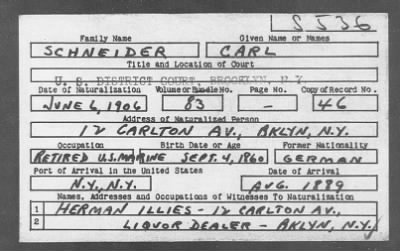 S536
Family Name Given Name or Names
SCHNEIDER CARL
Title and Location of Court
U. S. DISTRICT COURT, BROOKLYN, N.Y.
Date of Naturalization Volume or Bundle No. Page No. Copy of Record No.
JUNE 6, 1906 83 - 46
Address of Naturalized Person
12 CARLTON AV., BKLYN, N.Y.
Occupation Birth Date or Age Former Nationality
RETIRED U.S. MARINE SEPT. 4, 1860 GERMAN
Port of Arrival in the United States Date of Arrival
N.Y., N.Y. AUG. 1889
Names, Addresses and Occupations of Witnesses To Naturalization
1 HERMAN ILLIES - 12 CARLTON AV.,
2 LIQUOR DEALER - BKLYN, N.Y.